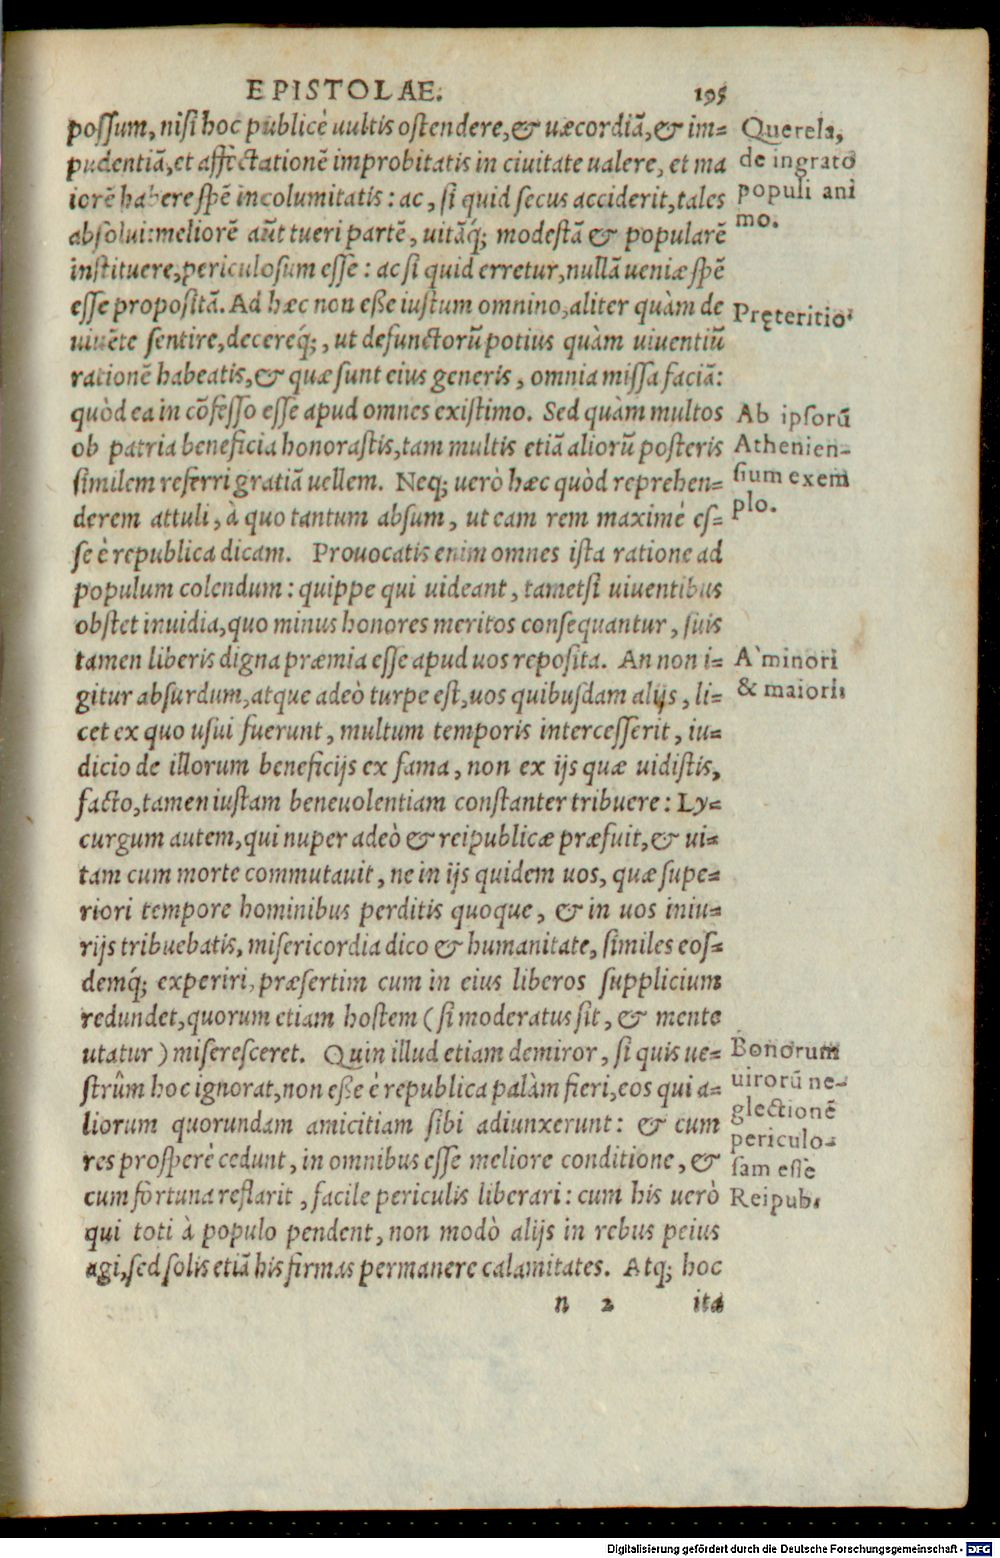 EPISTOLAE. 195
possum, nisi hoc publicè uultis ostendere, & uæcordiã, & im-
pudentiã, et affectationẽ improbitatis in ciuitate ualere, et ma
iorẽ habere spẽ incolumitatis: ac, si quid secus acciderit, tales
absolui: meliorẽ aũt tueri partẽ, uitãq́; modestã & popularẽ
instituere, periculosum esse: ac si quid erretur, nullã ueniæ spẽ
esse propositã. Ad hæc non esse iustum omnino, aliter quàm de
uiuẽte sentire, decereq́;, ut defunctorũ potius quàm uiuentiũ
rationẽ habeatis, & quæ sunt eius generis, omnia missa faciã:
quòd ea in cõfesso esse apud omnes existimo. Sed quàm multos
ob patria beneficia honorastis, tam multis etiã aliorũ posteris
similem referri gratiã uellem. Neq; uerò hæc quòd reprehen-
derem attuli, à quo tantum absum, ut eam rem maximè es-
se è republica dicam. Prouocatis enim omnes ista ratione ad
populum colendum: quippe qui uideant, tametsi uiuentibus
obstet inuidia, quo minus honores meritos consequantur, suis
tamen liberis digna præmia esse apud uos reposita. An non i-
gitur absurdum, atque adeò turpe est, uos quibusdam alijs, li-
cet ex quo usui fuerunt, multum temporis intercesserit, iu-
dicio de illorum beneficijs ex fama, non ex ijs quæ uidistis,
facto, tamen iustam beneuolentiam constanter tribuere: Ly-
curgum autem, qui nuper adeò & reipublicæ præfuit, & ui-
tam cum morte commutauit, ne in ijs quidem uos, quæ supe-
riori tempore hominibus perditis quoque, & in uos iniu-
rijs tribuebatis, misericordia dico & humanitate, similes eos-
demq́; experiri, præsertim cum in eius liberos supplicium
redundet, quorum etiam hostem (si moderatus sit, & mente
utatur) miseresceret. Quin illud etiam demiror, si quis ue-
strûm hoc ignorat, non esse è republica palàm fieri, eos qui a-
liorum quorundam amicitiam sibi adiunxerunt: & cum
res prosperè cedunt, in omnibus esse meliore conditione, &
cum fortuna reflarit, facile periculis liberari: cum his uerò
qui toti à populo pendent, non modò alijs in rebus peius
agi, sed solis etiã his firmas permanere calamitates. Atq; hoc
n 2 ita
Querela,
de ingrato
populi ani
mo.
Pręteritio
Ab ipsorũ
Athenien-
sium exem
plo.
A` minori
& maiori.
Bonorum
uirorũ ne-
glectionẽ
periculo-
sam esse
Reipub.
Digitalisierung gefördert durch die Deutsche Forschungsgemeinschaft - DFG